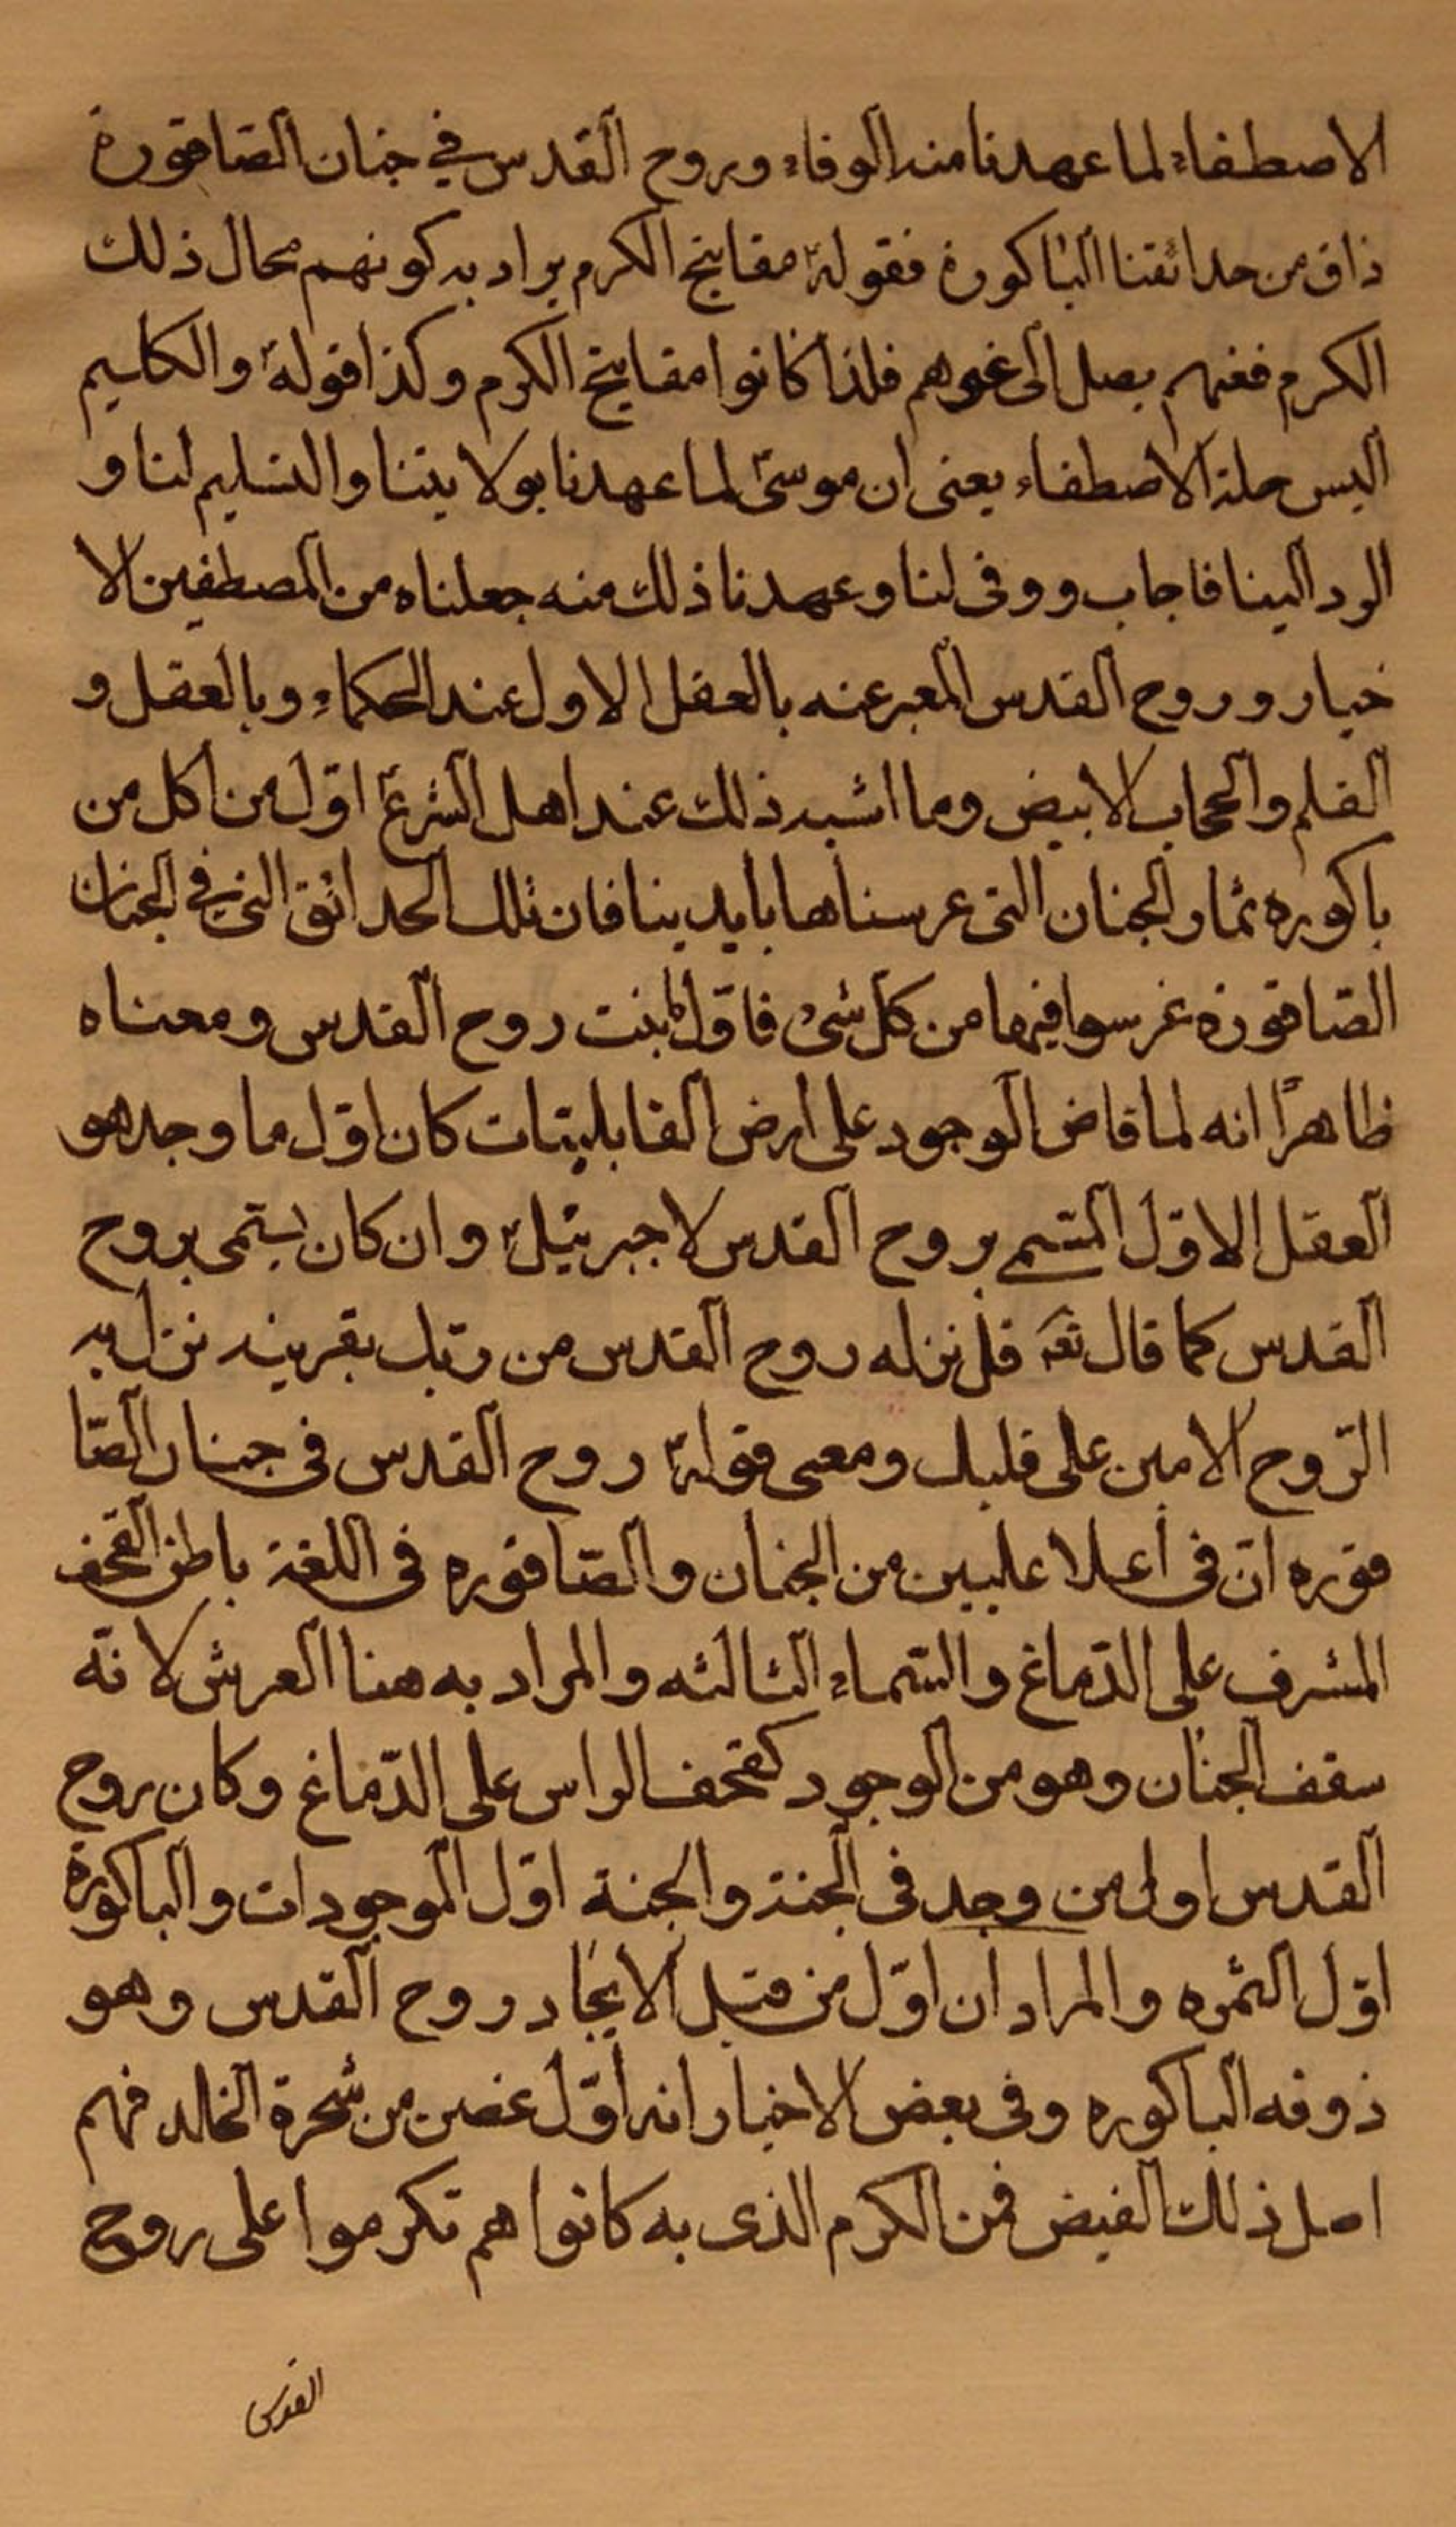 الاصطفاء لما عهدنا منه الوفاء وروح القدس في جنان الصاقورة
ذاق من حدائقنا الباكورة فقوله مفاتيح الكرم يراد به كونهم محال ذلك
الكرم فعنهم يصل الى غيرهم فلذا كانوا مفاتيح الكرم وكذا قوله والكليم
البس حلة الاصطفاء يعنى ان موسى لما عهدنا بولايتنا والتسليم لنا و
الرد الينا فاجاب ووفى لنا وعهدنا ذلك منه جعلناه من المصطفين الا
خيار وروح القدس المعبر عنه بالعقل الاول عند الحكماء وبالعقل و
القلم والحجاب الابيض وما اشبه ذلك عند اهل الشرع اوّل من اكل من
باكوره ثمار الجنان التى غرسناها بايدينا فان تلك الحدائق التى في الجنان
الصاقورة غرسوا فيها من كلّ شىء فاوّل نبت روح القدس ومعناه
ظاهرًا انه لما فاض الوجود على ارض القابليّات كان اوّل ما وجد هو
العقل الاوّل المسمى بروح القدس لا جبرئيل وان كان يسمّى بروح
القدس كما قال تعه قل نزله روح القدس من ربّك بقرينه نزل به
الرّوح الامين على قلبك ومعنى قوله روح القدس فى جنان الصّا
قوره انّ فى اعلا عليين من الجنان والصّاقوره فى اللغة باطن القحف
المشرف على الدّماغ والسّماء الثالثه والمراد به هنا العرش لانّه
سقف الجنان وهو من الوجود كقحف الراس على الدّماغ وكان روح
القدس اول من وجد فى الجنة والجنة اوّل الموجودات والباكورة
اوّل الثمره والمراد ان اوّل من قبل الايجاد روح القدس وهو
ذوقه الباكوره وفى بعض الاخبار انه اوّل غصن من شجرة الخلد فهم
اصل ذلك الفيض فمن الكرم الذى به كانوا هم تكرموا على روح
القدس